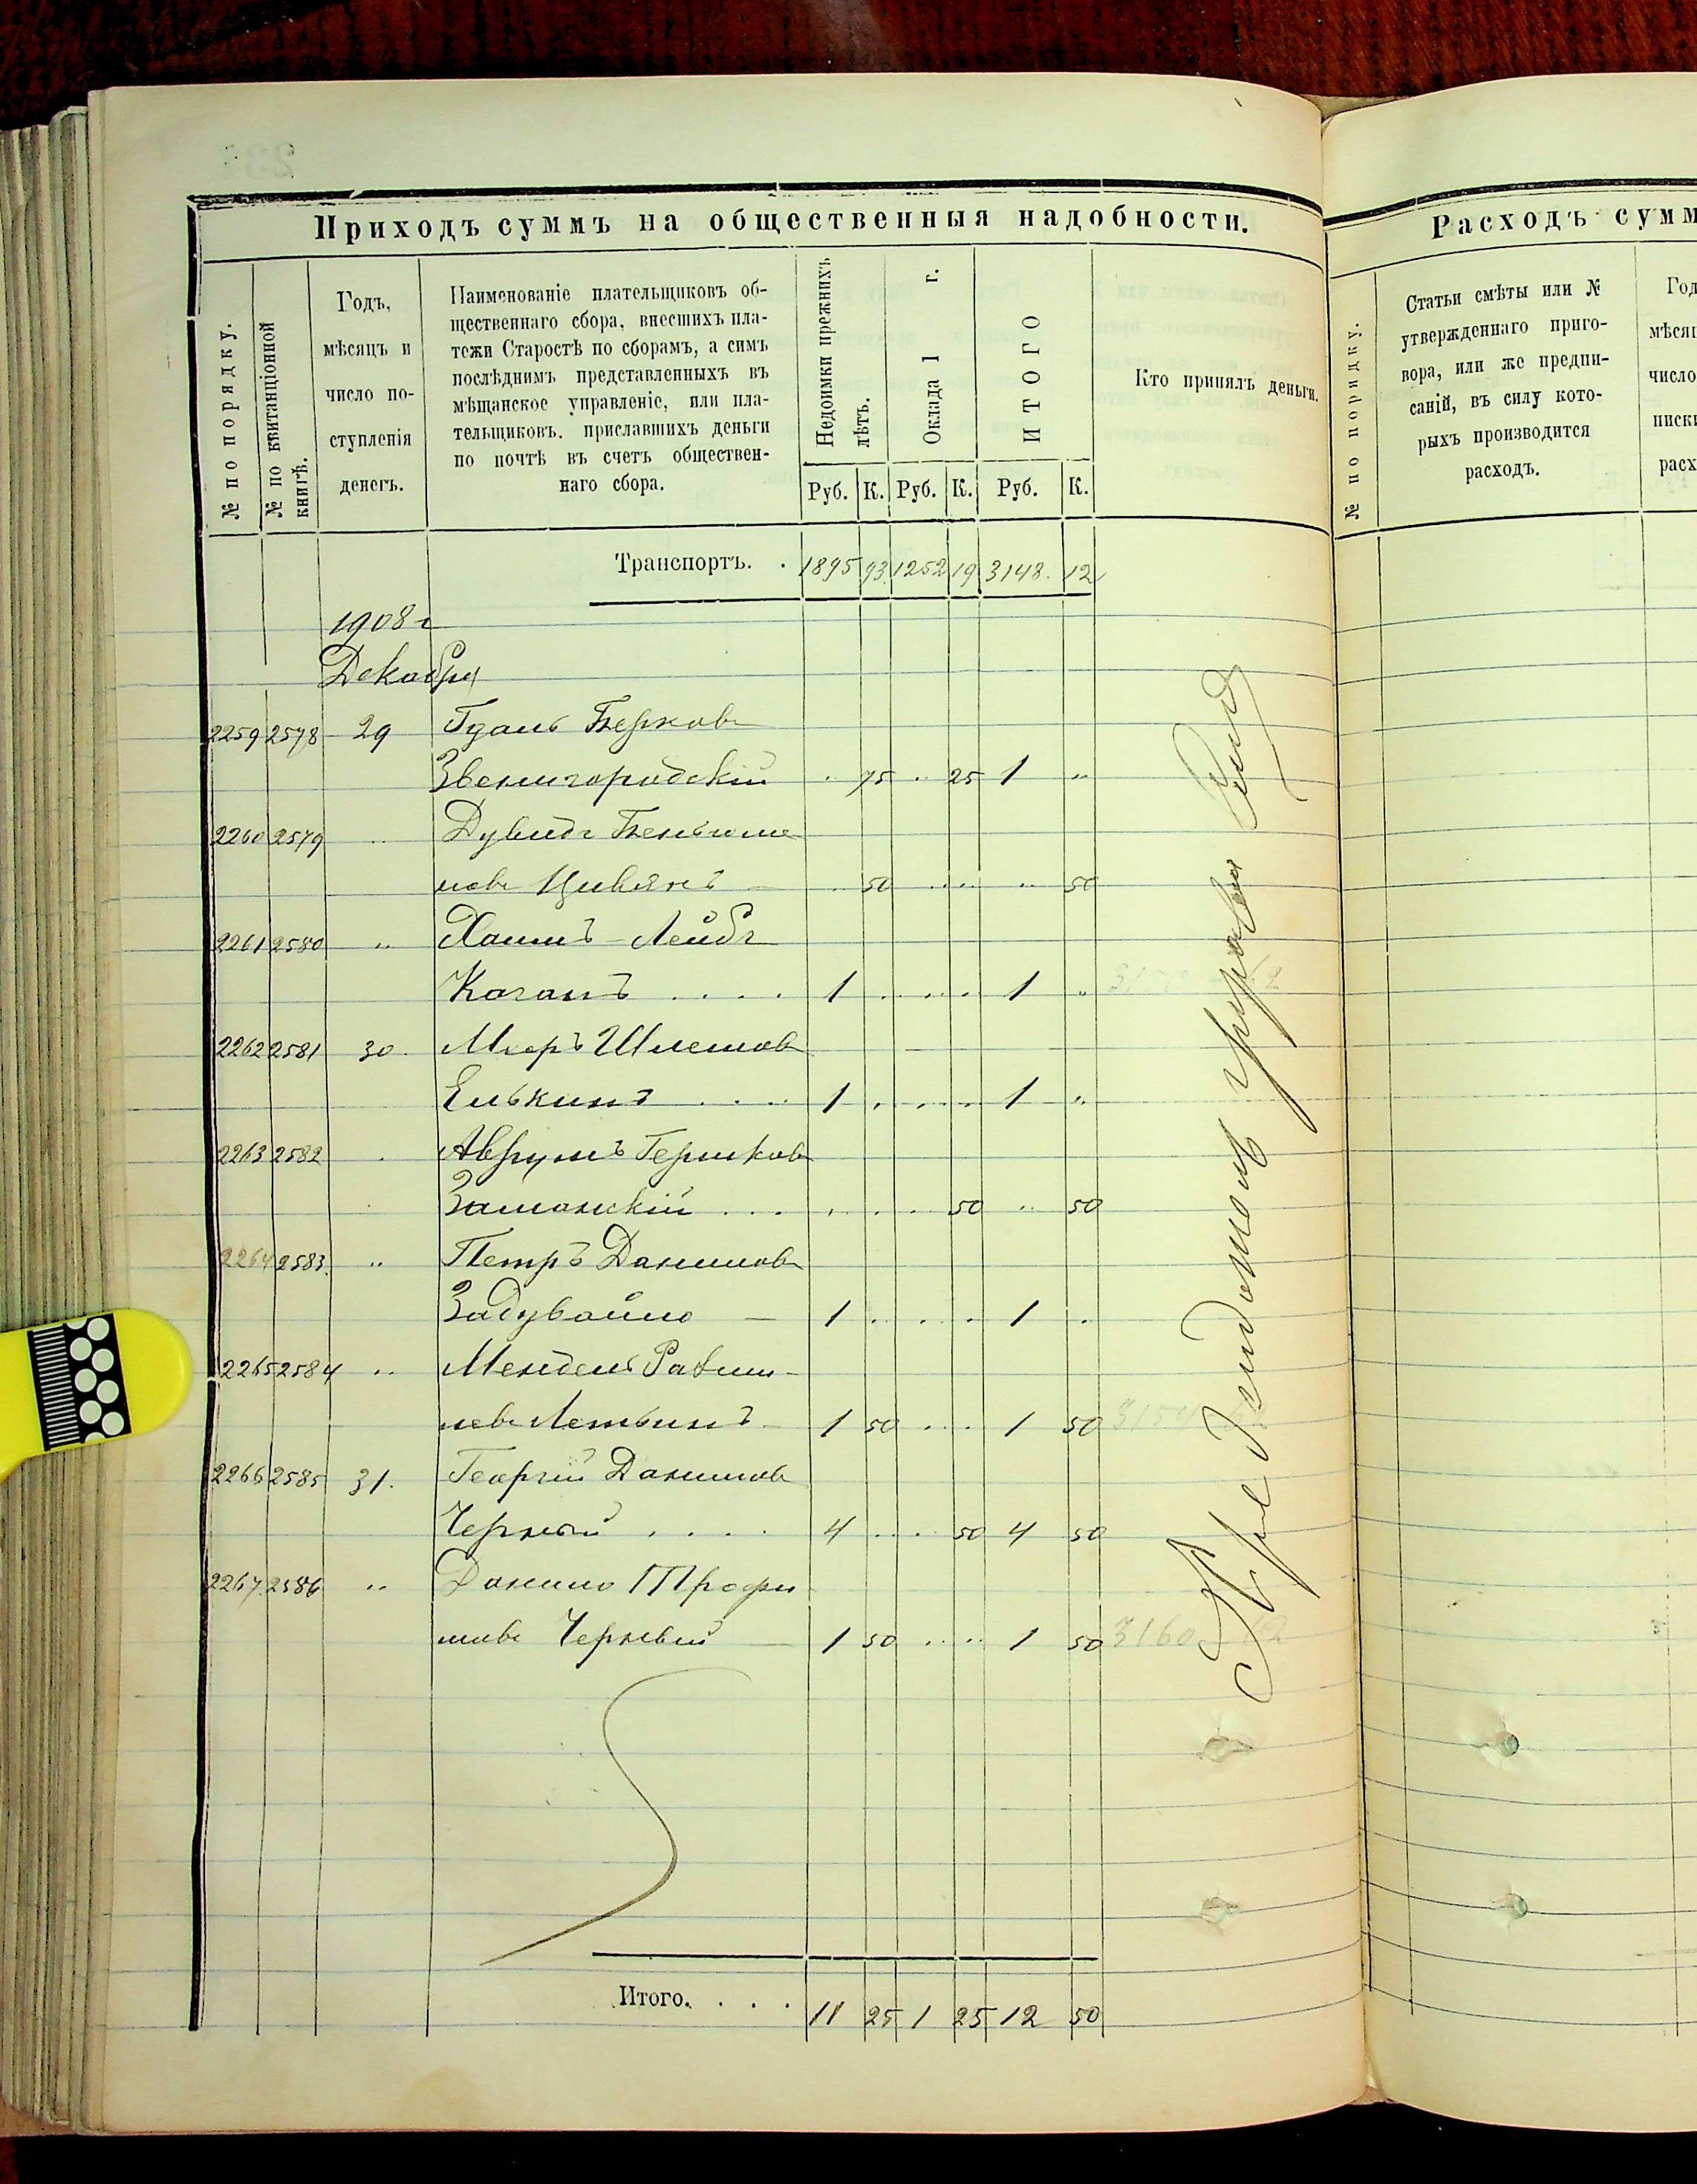 Приходъ суммъ на общественныя надобности.
№ по порядку.
№ по квитанціонной книгѣ.
Годъ,
мѣсяцъ и
число по-
ступленія
денегъ.
Наименованіе плательщиковъ об-
щественнаго сбора, внесшихъ пла-
тежи Старостѣ по сборамъ, а симъ
послѣднимъ представленныхъ въ
мѣщанское управленіе, или пла-
тельщиковъ, приславшихъ деньги
по почтѣ въ счетъ обществен-
наго сбора.
Недоимки прежнихъ лѣтъ.
Оклада 1 г.
ИТОГО
Руб. К. Руб. К. Руб. К.
Кто принялъ деньги.
Транспортъ. . 1895 93 1252 19 3148. 12
1908 г
Декабря
2259 2578 29
Звенигородскій .. 75 .. 25 1 ..
2260 2579 ..
новъ Цивьянъ .. 50 .... .. 50
2261 2580 .. Хаимъ-Лейба
Каганъ .... 1 ..... 1 ..
2262 2581 30.
Елькинъ .... 1 ..... 1 ..
2263 2582 . Аврумъ Гершковъ
Заманскій ... .... 50 .. 50
2264 2583. .. Петръ Даниловъ
Задувайло — 1 .... 1 .
2265 2584 .. Мендель
1 50 .... 1 50
2266 2585 31. Георгій Даниловъ
Черный .... 4 ... 50 4 50
2267 2586 .. Данило Трофи
мовъ Черный — 1 50 .... 1 50 3160
Итого. . . . 11 25 1 25 12 50
Расходъ сумм
№ по порядку.
Статьи смѣты или №
утвержденнаго приго-
вора, или же предпи-
саній, въ силу кото-
рыхъ производится
расходъ.
Год
мѣсяц
число
писки
расх